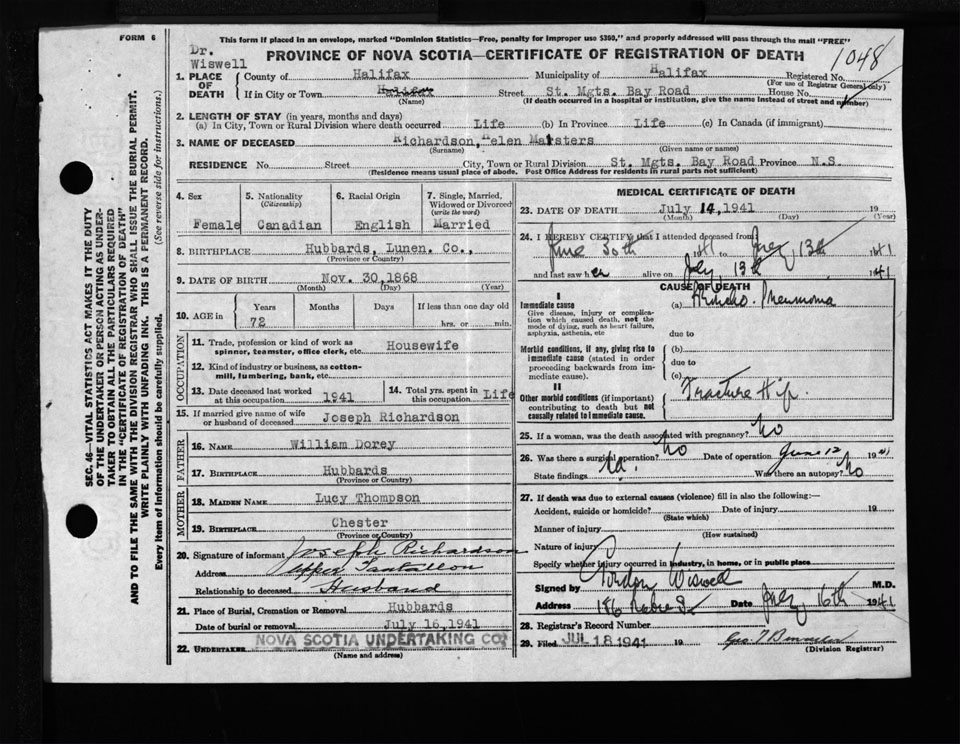 FORM 6
This form if placed in an envelope, marked "Dominion Statistics—Free, penalty for improper use $300," and properly addressed will pass through the mail "FREE"
Dr. Wiswell
PROVINCE OF NOVA SCOTIA—CERTIFICATE OF REGISTRATION OF DEATH
1048
1. PLACE OF DEATH
County of Halifax Municipality of Halifax Registered No.
(For use of Registrar General only)
If in City or Town Halifax Street St. Mgts. Bay Road House No.
(Name) (If death occurred in a hospital or institution, give the name instead of street and number)
2. LENGTH OF STAY (in years, months and days)
(a) In City, Town or Rural Division where death occurred Life (b) In Province Life (c) In Canada (if immigrant)
3. NAME OF DECEASED Richardson, Helen Marsters
(Surname) (Given name or names)
RESIDENCE No. Street City, Town or Rural Division St. Mgts. Bay Road Province N.S.
(Residence means usual place of abode. Post Office Address for residents in rural parts not sufficient)
4. Sex 5. Nationality (Citizenship) 6. Racial Origin 7. Single, Married, Widowed or Divorced (write the word)
Female Canadian English Married
8. BIRTHPLACE Hubbards, Lunen. Co.,
(Province or Country)
9. DATE OF BIRTH Nov. 30, 1868
(Month) (Day) (Year)
10. AGE in Years Months Days If less than one day old
72 hrs. or min.
OCCUPATION
11. Trade, profession or kind of work as spinner, teamster, office clerk, etc. Housewife
12. Kind of industry or business, as cotton-mill, lumbering, bank, etc.
13. Date deceased last worked at this occupation 1941
14. Total yrs. spent in this occupation Life
15. If married give name of wife or husband of deceased Joseph Richardson
FATHER
16. NAME William Dorey
17. BIRTHPLACE Hubbards
(Province or Country)
MOTHER
18. MAIDEN NAME Lucy Thompson
19. BIRTHPLACE Chester
(Province or Country)
20. Signature of informant Joseph Richardson
Address Upper Tantallon
Relationship to deceased Husband
21. Place of Burial, Cremation or Removal Hubbards
Date of burial or removal July 16, 1941
22. UNDERTAKER NOVA SCOTIA UNDERTAKING CO
(Name and address)
MEDICAL CERTIFICATE OF DEATH
23. DATE OF DEATH July 14, 1941 19
(Month) (Day) (Year)
24. I HEREBY CERTIFY that I attended deceased from
June 30th 1941 July 13th 41
and last saw her alive on July 13th 41
CAUSE OF DEATH
I
Immediate cause (a) Pneumonia
Give disease, injury or complication which caused death, not the mode of dying, such as heart failure, asphyxia, asthenia, etc
due to
Morbid conditions, if any, giving rise to immediate cause (stated in order proceeding backwards from immediate cause).
(b)
due to
(c)
II
Other morbid conditions (if important) contributing to death but not causally related to immediate cause.
Fracture Hip
25. If a woman, was the death associated with pregnancy? No
26. Was there a surgical operation? No Date of operation June 12 1941
State findings Was there an autopsy? No
27. If death was due to external causes (violence) fill in also the following:—
Accident, suicide or homicide? Date of injury 19
(State which)
Manner of injury
(How sustained)
Nature of injury
Specify whether injury occurred in industry, in home, or in public place
Signed by Gordon Wiswell M.D.
Address 186 Date July 16th 1941
28. Registrar's Record Number
29. Filed JUL 18 1941 19
(Division Registrar)
SEC. 46—VITAL STATISTICS ACT MAKES IT THE DUTY
OF THE UNDERTAKER OR PERSON ACTING AS UNDER-
TAKER TO OBTAIN ALL THE PARTICULARS REQUIRED
IN THE "CERTIFICATE OF REGISTRATION OF DEATH"
AND TO FILE THE SAME WITH THE DIVISION REGISTRAR WHO SHALL ISSUE THE BURIAL PERMIT.
WRITE PLAINLY WITH UNFADING INK. THIS IS A PERMANENT RECORD.
Every item of information should be carefully supplied. (See reverse side for instructions.)